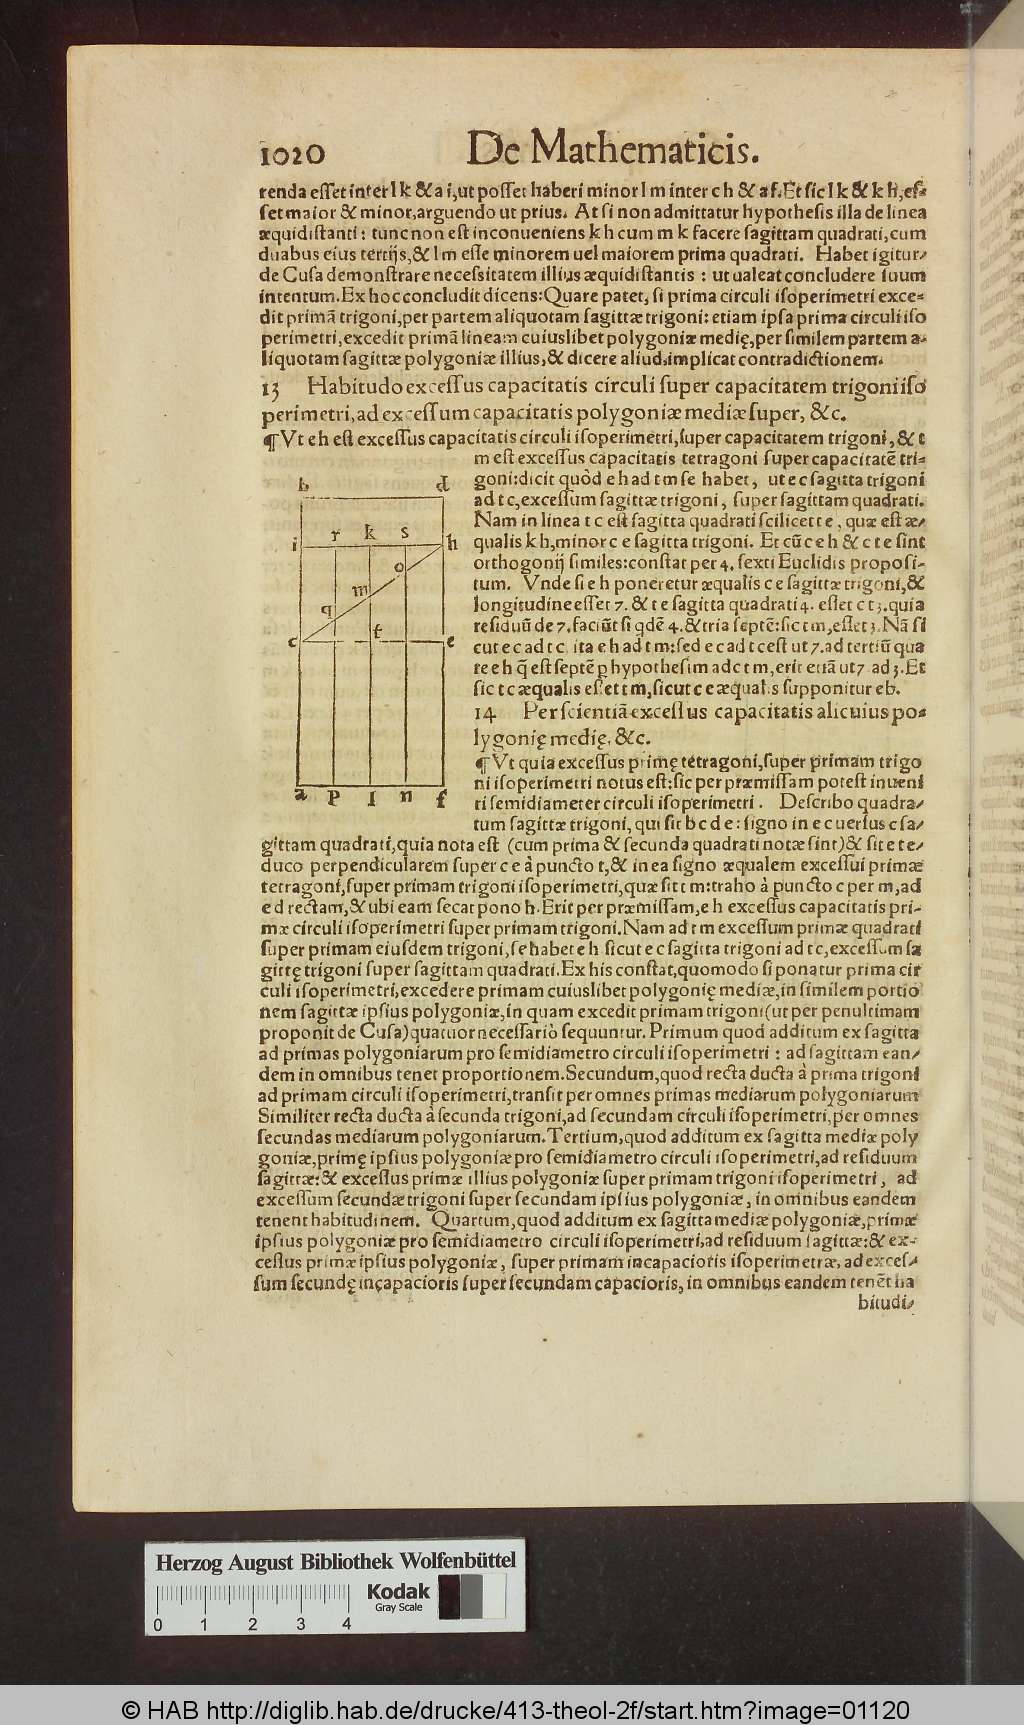 1020 De Mathematicis.
renda esset inter l k & a i, ut posset haberi minor l m inter c h & a f. Et sic l k & k h, es-
set maior & minor, arguendo ut prius. At si non admittatur hypothesis illa de linea
æquidistanti: tunc non est inconueniens k h cum m k facere sagittam quadrati, cum
duabus eius tertijs, & l m esse minorem uel maiorem prima quadrati. Habet igitur
de Cusa demonstrare necessitatem illius æquidistantis: ut ualeat concludere suum
intentum. Ex hoc concludit dicens: Quare patet, si prima circuli isoperimetri exce-
dit primã trigoni, per partem aliquotam sagittæ trigoni: etiam ipsa prima circuli iso
perimetri, excedit primã lineam cuiuslibet polygoniæ medię, per similem partem a-
liquotam sagittæ polygoniæ illius, & dicere aliud, implicat contradictionem.
13 Habitudo excessus capacitatis circuli super capacitatem trigoni iso
perimetri, ad excessum capacitatis polygoniæ mediæ super, &c.
¶ Vt e h est excessus capacitatis circuli isoperimetri, super capacitatem trigoni, & t
m est excessus capacitatis tetragoni super capacitatẽ tri-
goni: dicit quòd e h ad t m se habet, ut e c sagitta trigoni
ad t c, excessum sagittæ trigoni, super sagittam quadrati.
Nam in linea t c est sagitta quadrati scilicet t e, quæ est æ-
qualis k h, minor c e sagitta trigoni. Et cũ c e h & c t e sint
orthogonij similes: constat per 4. sexti Euclidis proposi-
tum. Vnde si e h poneretur æqualis c e sagittæ trigoni, &
longitudine esset 7. & t e sagitta quadrati 4. esset c t 3. quia
residuũ de 7. faciũt si qdẽ 4. & tria septẽ: sic t m, esset 3. Nã si
cut e c ad t c, ita e h ad t m: sed e c ad t c est ut 7. ad tertiũ qua
re e h q̃ est septẽ p hypothesim ad c t m, erit etiã ut 7 ad 3. Et
sic t c æqualis esset t m, sicut c e æqualis supponitur e h.
14 Per scientiã excessus capacitatis alicuius po-
lygonię medię, &c.
¶ Vt quia excessus primę tetragoni, super primam trigo
ni isoperimetri notus est: sic per præmissam potest inueni
ri semidiameter circuli isoperimetri. Describo quadra-
tum sagittæ trigoni, qui sit b c d e: signo in e c uersus c sa-
b d
r k s
i h
o
m
q
t
c e
a p l n f
gittam quadrati, quia nota est (cum prima & secunda quadrati notæ sint) & sit e t e-
duco perpendicularem super c e à puncto t, & in ea signo æqualem excessui primæ
tetragoni, super primam trigoni isoperimetri, quæ sit t m: traho à puncto c per m, ad
e d rectam, & ubi eam secat pono h. Erit per præmissam, e h excessus capacitatis pri-
mæ circuli isoperimetri super primam trigoni. Nam ad t m excessum primæ quadrati
super primam eiusdem trigoni, se habet e h sicut e c sagitta trigoni ad t c, excessum sa
gittę trigoni super sagittam quadrati. Ex his constat, quomodo si ponatur prima cir
culi isoperimetri, excedere primam cuiuslibet polygonię mediæ, in similem portio
nem sagittæ ipsius polygoniæ, in quam excedit primam trigoni (ut per penultimam
proponit de Cusa) quatuor necessariò sequuntur. Primum quod additum ex sagitta
ad primas polygoniarum pro semidiametro circuli isoperimetri: ad sagittam ean-
dem in omnibus tenet proportionem. Secundum, quod recta ducta à prima trigoni
ad primam circuli isoperimetri, transit per omnes primas mediarum polygoniarum
Similiter recta ducta à secunda trigoni, ad secundam circuli isoperimetri, per omnes
secundas mediarum polygoniarum. Tertium, quod additum ex sagitta mediæ poly
goniæ, primę ipsius polygoniæ pro semidiametro circuli isoperimetri, ad residuum
sagittæ: & excessus primæ illius polygoniæ super primam trigoni isoperimetri, ad
excessum secundæ trigoni super secundam ipsius polygoniæ, in omnibus eandem
tenent habitudinem. Quartum, quod additum ex sagitta mediæ polygoniæ, primæ
ipsius polygoniæ pro semidiametro circuli isoperimetri, ad residuum sagittæ: & ex-
cessus primæ ipsius polygoniæ, super primam incapacioris isoperimetræ, ad exces-
sum secundę incapacioris super secundam capacioris, in omnibus eandem tenẽt ha
bitudi-
Herzog August Bibliothek Wolfenbüttel
Kodak
Gray Scale
0 1 2 3 4
© HAB http://diglib.hab.de/drucke/413-theol-2f/start.htm?image=01120